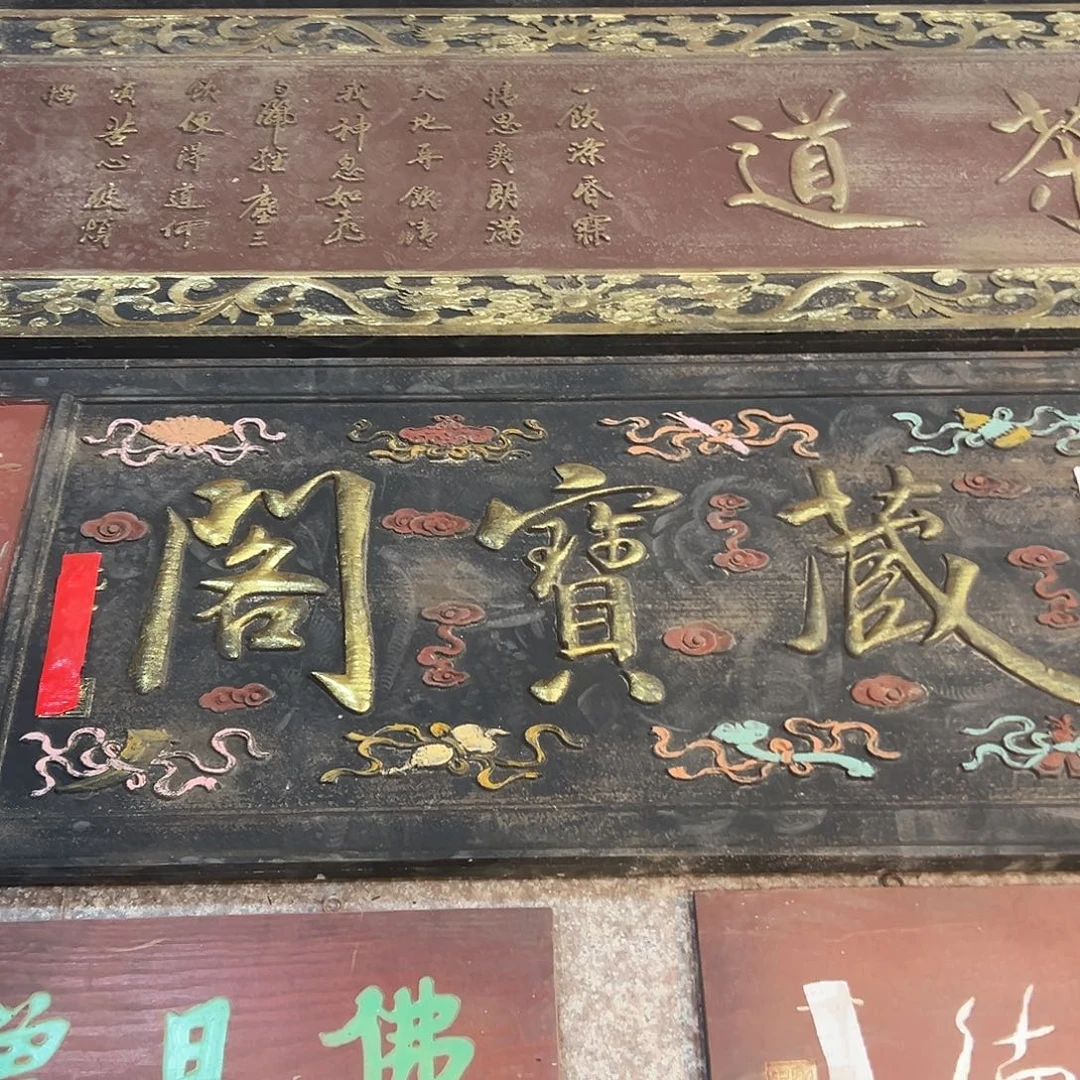 茶道
一飲滌昏寐
情思爽朗滿
天地再飲清
我神忽如飛
雨灑輕塵三
飲便得道何
須苦心破煩
惱
藏寶閣
佛日